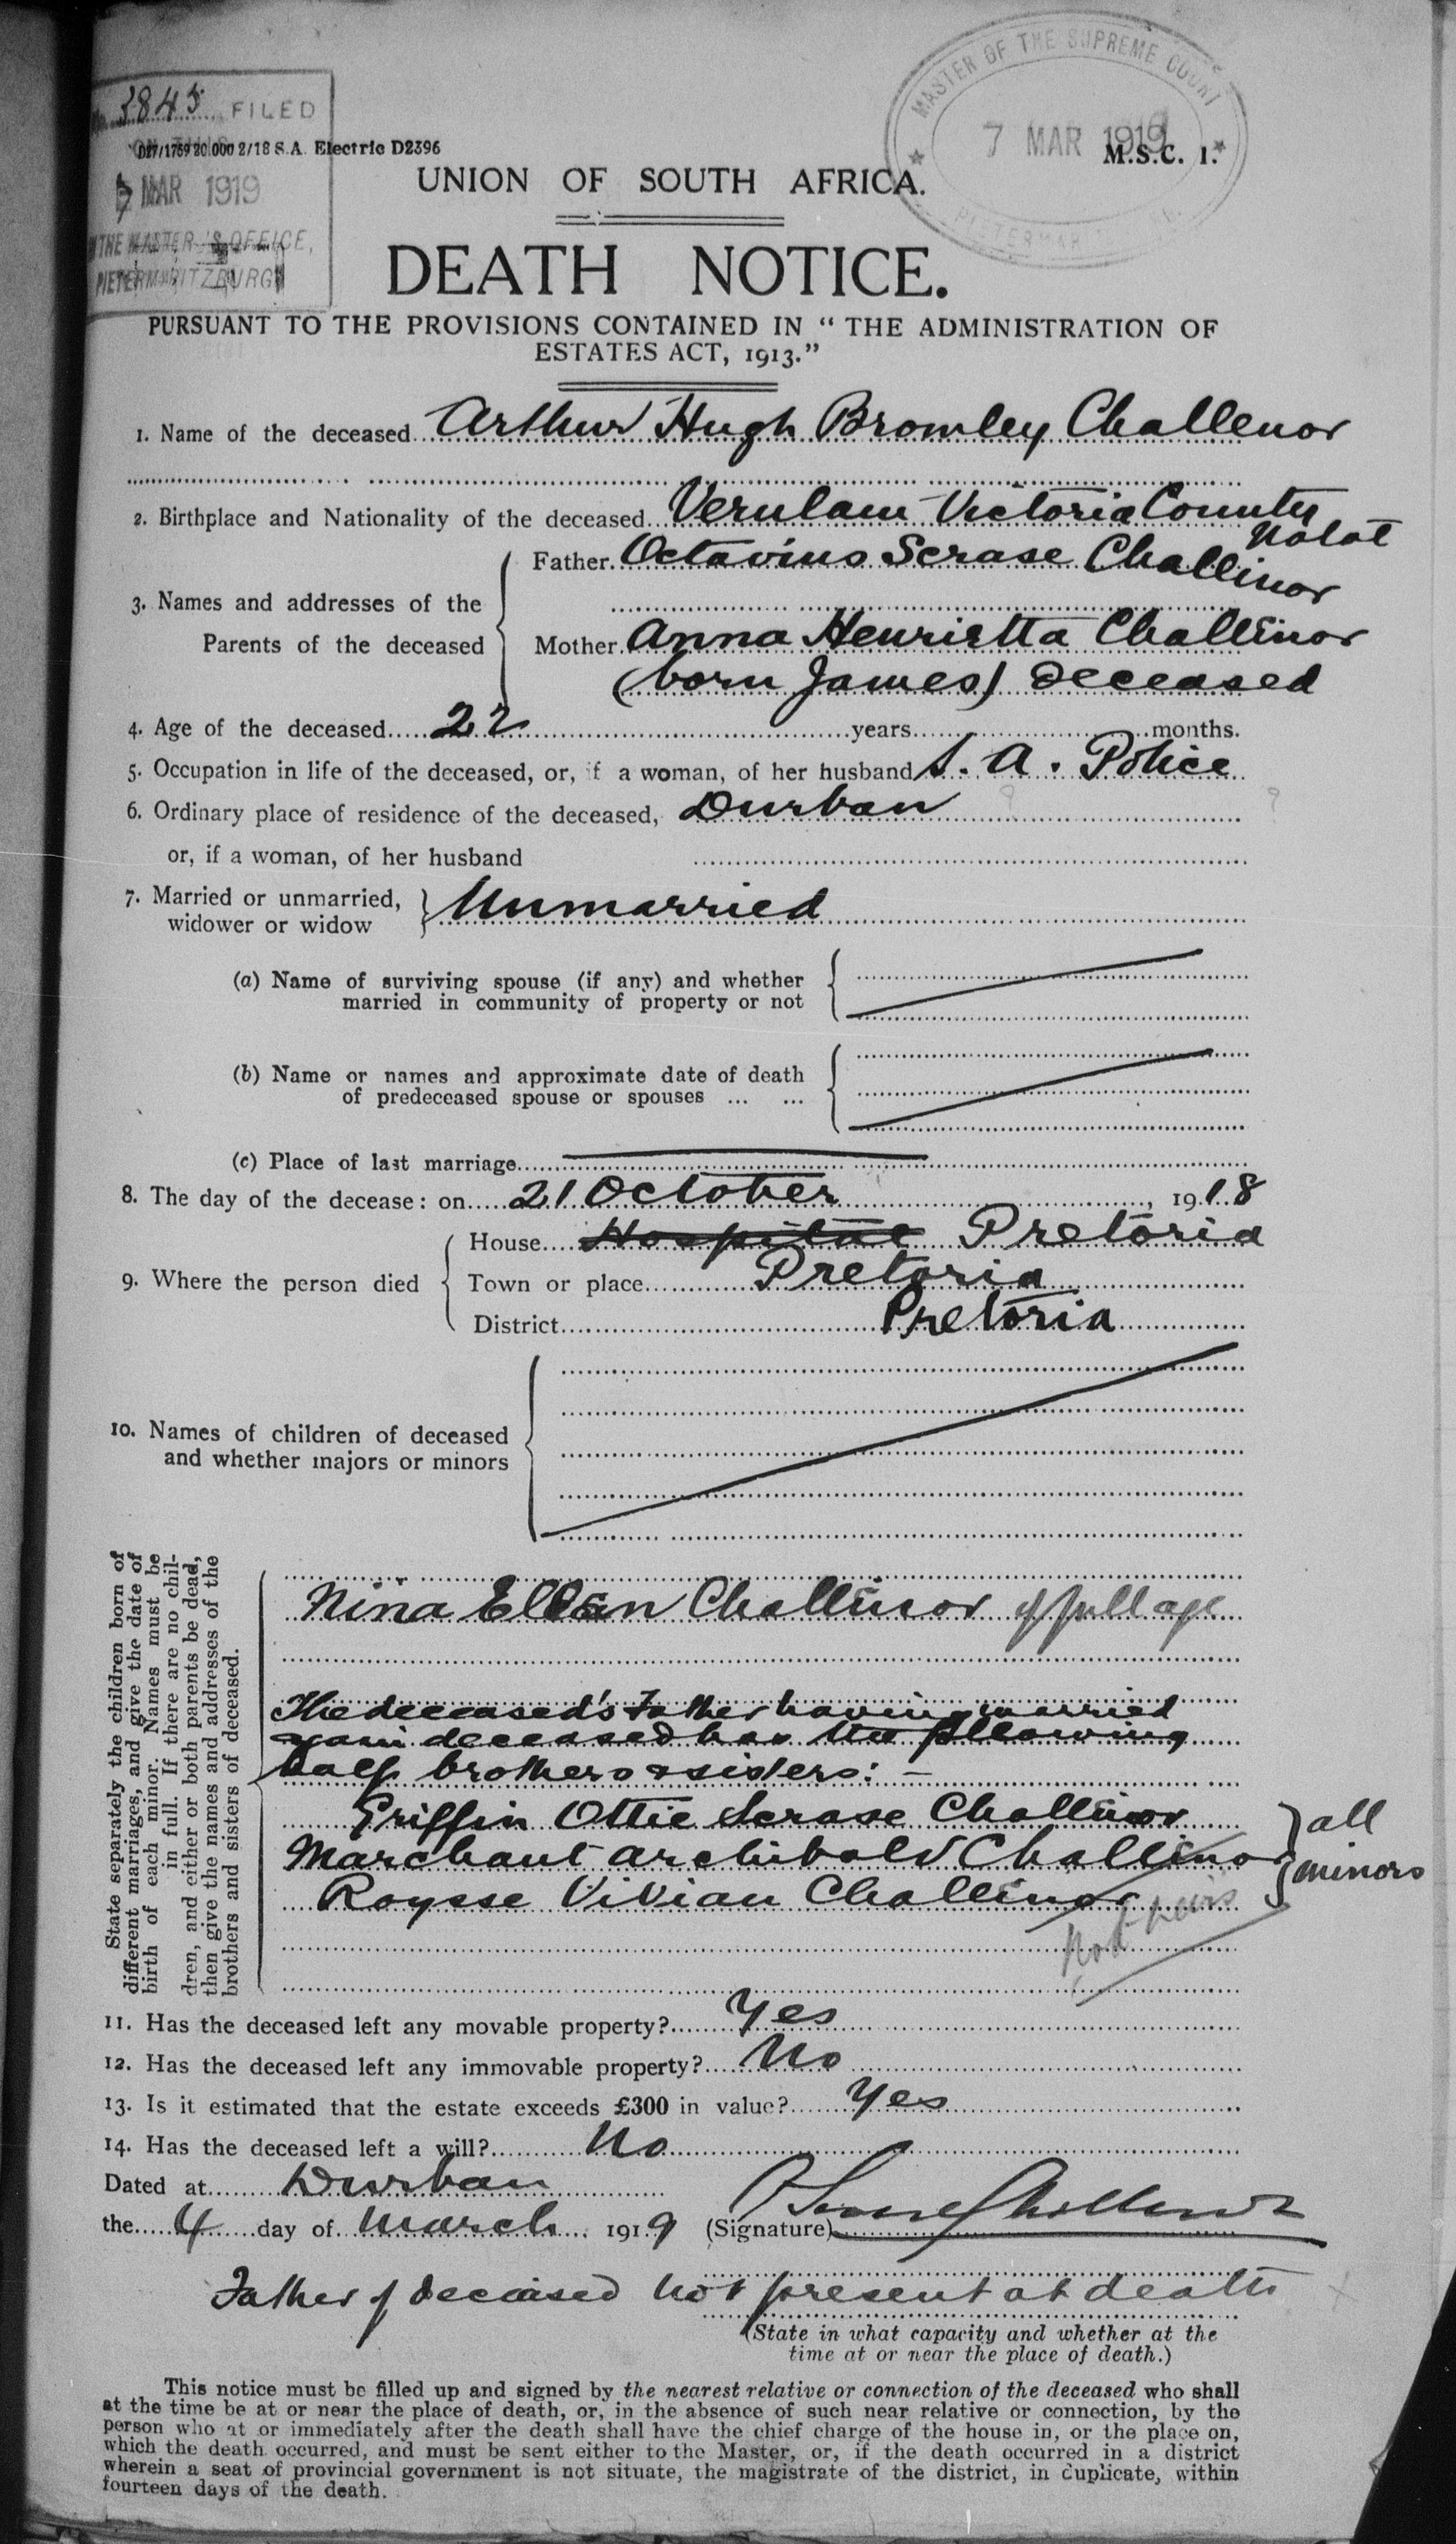 No. 3845 FILED
ON THIS
7 MAR 1919
IN THE MASTER'S OFFICE,
PIETERMARITZBURG
D27/1759 20,000 2/18 S.A. Electric D2396
MASTER OF THE SUPREME COURT
7 MAR 1919
M.S.C. 1.
UNION OF SOUTH AFRICA.
DEATH NOTICE.
PURSUANT TO THE PROVISIONS CONTAINED IN “ THE ADMINISTRATION OF
ESTATES ACT, 1913.”
1. Name of the deceased Arthur Hugh Bromley Challenor
2. Birthplace and Nationality of the deceased Verulam Victoria County
Natal
3. Names and addresses of the Parents of the deceased
Father Octavius Scrase Challinor
Mother Anna Henrietta Challinor
(born James) deceased
4. Age of the deceased 22 years months.
5. Occupation in life of the deceased, or, if a woman, of her husband S. A. Police
6. Ordinary place of residence of the deceased, Durban
or, if a woman, of her husband
7. Married or unmarried, widower or widow Unmarried
(a) Name of surviving spouse (if any) and whether
married in community of property or not
(b) Name or names and approximate date of death
of predeceased spouse or spouses ... ...
(c) Place of last marriage
8. The day of the decease: on 21 October, 1918
9. Where the person died
House Hospital Pretoria
Town or place Pretoria
District Pretoria
10. Names of children of deceased
and whether majors or minors
State separately the children born of
different marriages, and give the date of
birth of each minor. Names must be
in full. If there are no chil-
dren, and either or both parents be dead,
then give the names and addresses of the
brothers and sisters of deceased.
Nina Ellen Challinor of full age
The deceased's Father having married
again deceased has the following
half brothers & sisters: -
Griffin Ottie Scrase Challinor
Marchant Archibald Challinor
Roysse Vivian Challinor
} all
minors
Not heirs
11. Has the deceased left any movable property? Yes
12. Has the deceased left any immovable property? No
13. Is it estimated that the estate exceeds £300 in value? Yes
14. Has the deceased left a will? No
Dated at Durban
the 4 day of March 1919 (Signature) O Scrase Challinor
Father of deceased not present at death
(State in what capacity and whether at the
time at or near the place of death.)
This notice must be filled up and signed by the nearest relative or connection of the deceased who shall
at the time be at or near the place of death, or, in the absence of such near relative or connection, by the
person who at or immediately after the death shall have the chief charge of the house in, or the place on,
which the death occurred, and must be sent either to the Master, or, if the death occurred in a district
wherein a seat of provincial government is not situate, the magistrate of the district, in duplicate, within
fourteen days of the death.